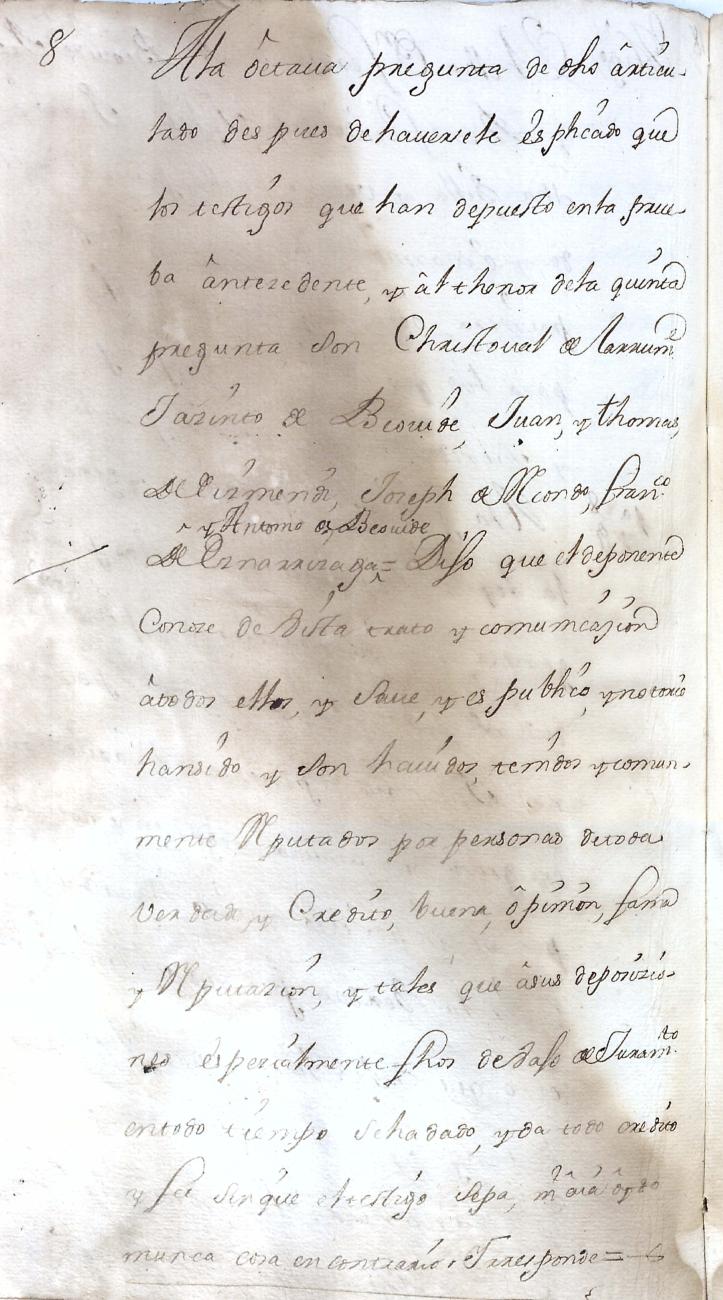 8
A la òctaua pregunta de dho àrticu-
lado des pues de hauersele èsplicado que
los testigos que han depuesto en la prue-
ba ànteze dente, y àl thenor de la quinta
pregunta son Christoual de
Jazinto de Beouide, Juan, y thomas,
de Joseph de Elcondo, franco
y Antonio de Beouide
de Diso que el deponente
Conoze de vista trato y comunicazion
àtodos ellos, y saue, y es publico, y notorio
han sido y son hauidos, tenidos y comun-
mente Reputados por personas de toda
verdad, y Credito, buena, òpinion, fama
y Reputazion, y tales que àsus depozizio-
nes èspezialmente fhos de vaso de Juramto
en todo tiempo se ha dado, y da todo credito
y fee sin que el testigo sepa, ni aia òydo
nunca cosa en contrario, Y rresponde =